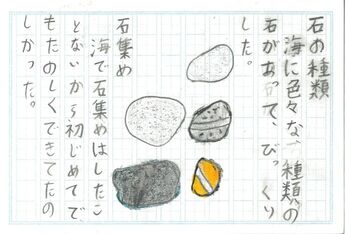 石の種類
海に色々な種類の
石があって、びっくり
した。
石集め
海で石集めはしたこ
とないから初じめてで
もたのしくできてたの
しかった。